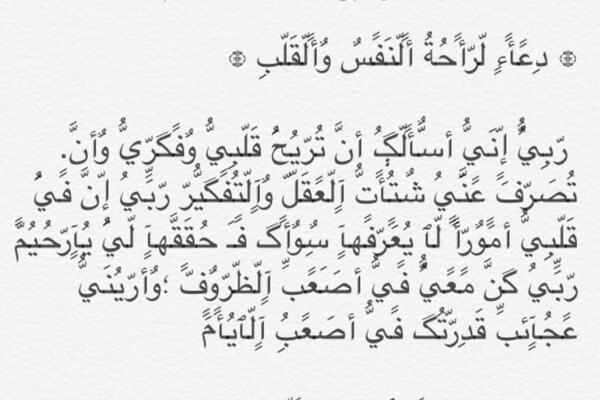 ۞ دِعًأَءٍ لّرّأَحُةُ ألّنَفَسٌ وٌألّقَلّبِ ۞
رّبِيُّ إنَّيُ أسٌّألّگُِ أنَّ تُرّيُحُ قَلّبِيُّ وٌفًکرّيُّ وٌأنَّ.
تُصَرّفَ عًنَّيُ شٌتُأَتُّ آلّعًقَلّ وٌآلّتُفَګيُّرّ رّبِّيُ إنَّ فَيُ
قَلّبِيُّ أمًوٌرّأً لّآ يُعًرّفَهآ سٌِوٌأګ فَـ حُقَقَّهآ لّيُ يُآرّحُيُمًّ
رّبِّيُ گنَّ مًعًيُّ فَيُّ أصَعًبِّ آلّظّرّوٌفَّ ؛وٌأرّيُنَيُّ
عًجٌآئبِّ قَدِرّتُّګ فَيُّ أصَعًبُِ آلّآيُأمً